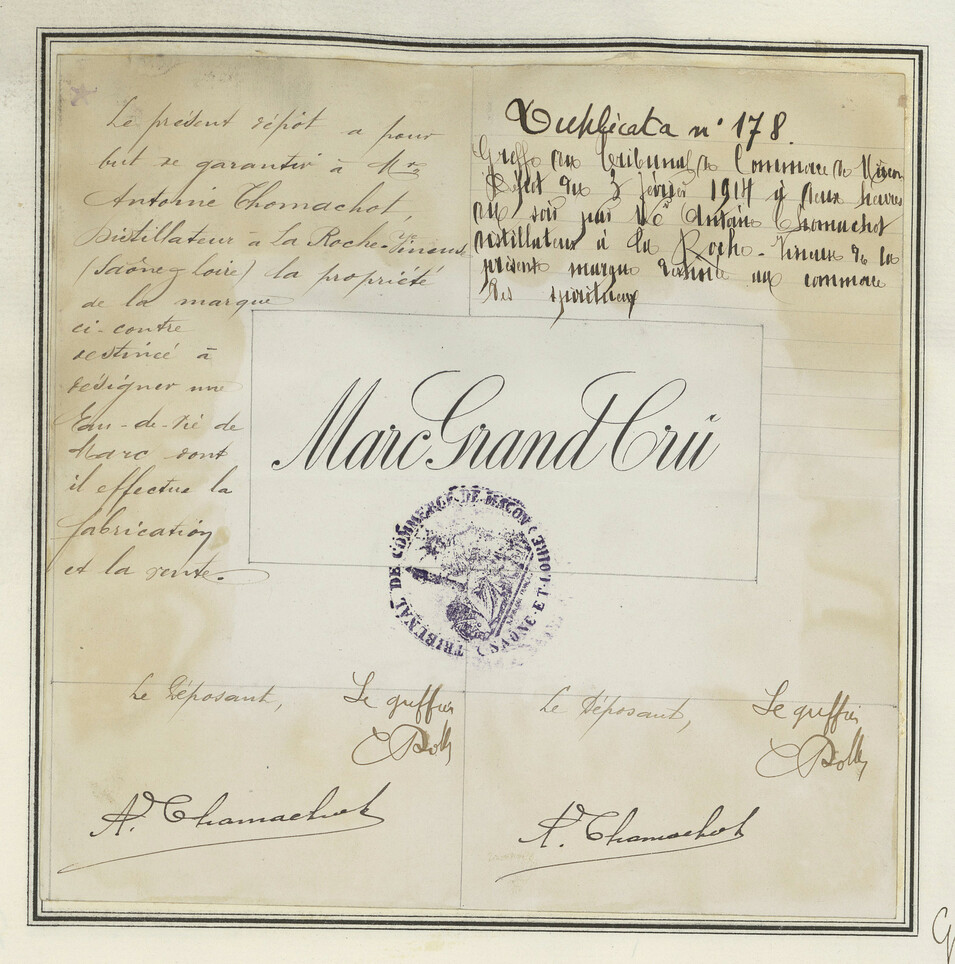 Le présent dépôt a pour
but de garantir à Mr
Antoine Thomachot,
distillateur à La Roche-Vineuse
(Saône & Loire) la propriété
de la marque
ci-contre
destinée à
désigner une
Eau-de-Vie de
Marc dont
il effectue la
fabrication
et la vente.
Duplicata n° 178.
Greffe du Tribunal de Commerce de Mâcon
Dépôt du 3 février 1914 à deux heures
du soir par Antoine Thomachot
distillateur à La Roche-Vineuse de la
présente marque destinée au commerce
des spiritueux
Marc Grand Crü
TRIBUNAL DE COMMERCE DE MACON (SAÔNE-ET-LOIRE)
Le Déposant, Le greffier
A. Thomachot
Le Déposant, Le greffier
A. Thomachot